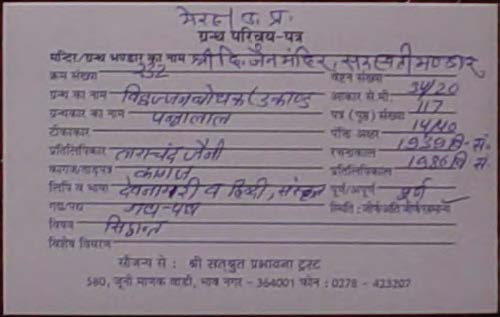 मेरठ उ. प्र.
ग्रन्थ परिचय-पत्र
मन्दिर/ग्रन्थ भण्डार का नाम श्री दि. जैन मंदिर, सरस्वती भण्डार
क्रम संख्या 232 वेष्टन संख्या
ग्रन्थ का नाम विद्वज्जनबोधक (उकाण्ड आकार से.मी. 34/20
ग्रन्थकार का नाम पन्नालाल पत्र (पृष्ठ) संख्या 117
टीकाकार पंक्ति अक्षर 14/40
प्रतिलिपिकार ताराचंद जैनी रचनाकाल 1939 वि. सं.
कागज/ताड़पत्र कागज प्रतिलिपिकाल 1986 वि सं
लिपि व भाषा देवनागरी व हिन्दी, संस्कृत पूर्ण/अपूर्ण पूर्ण
गद्य/पद्य गद्य-पद्य स्थिति : जीर्ण/अति जीर्ण/सामान्य
विषय सिद्धान्त
विशेष विवरण
सौजन्य से : श्री सत्श्रुत प्रभावना ट्रस्ट
580, जूनी माणक वाडी, भाव नगर - 364001 फोन : 0278 - 423207